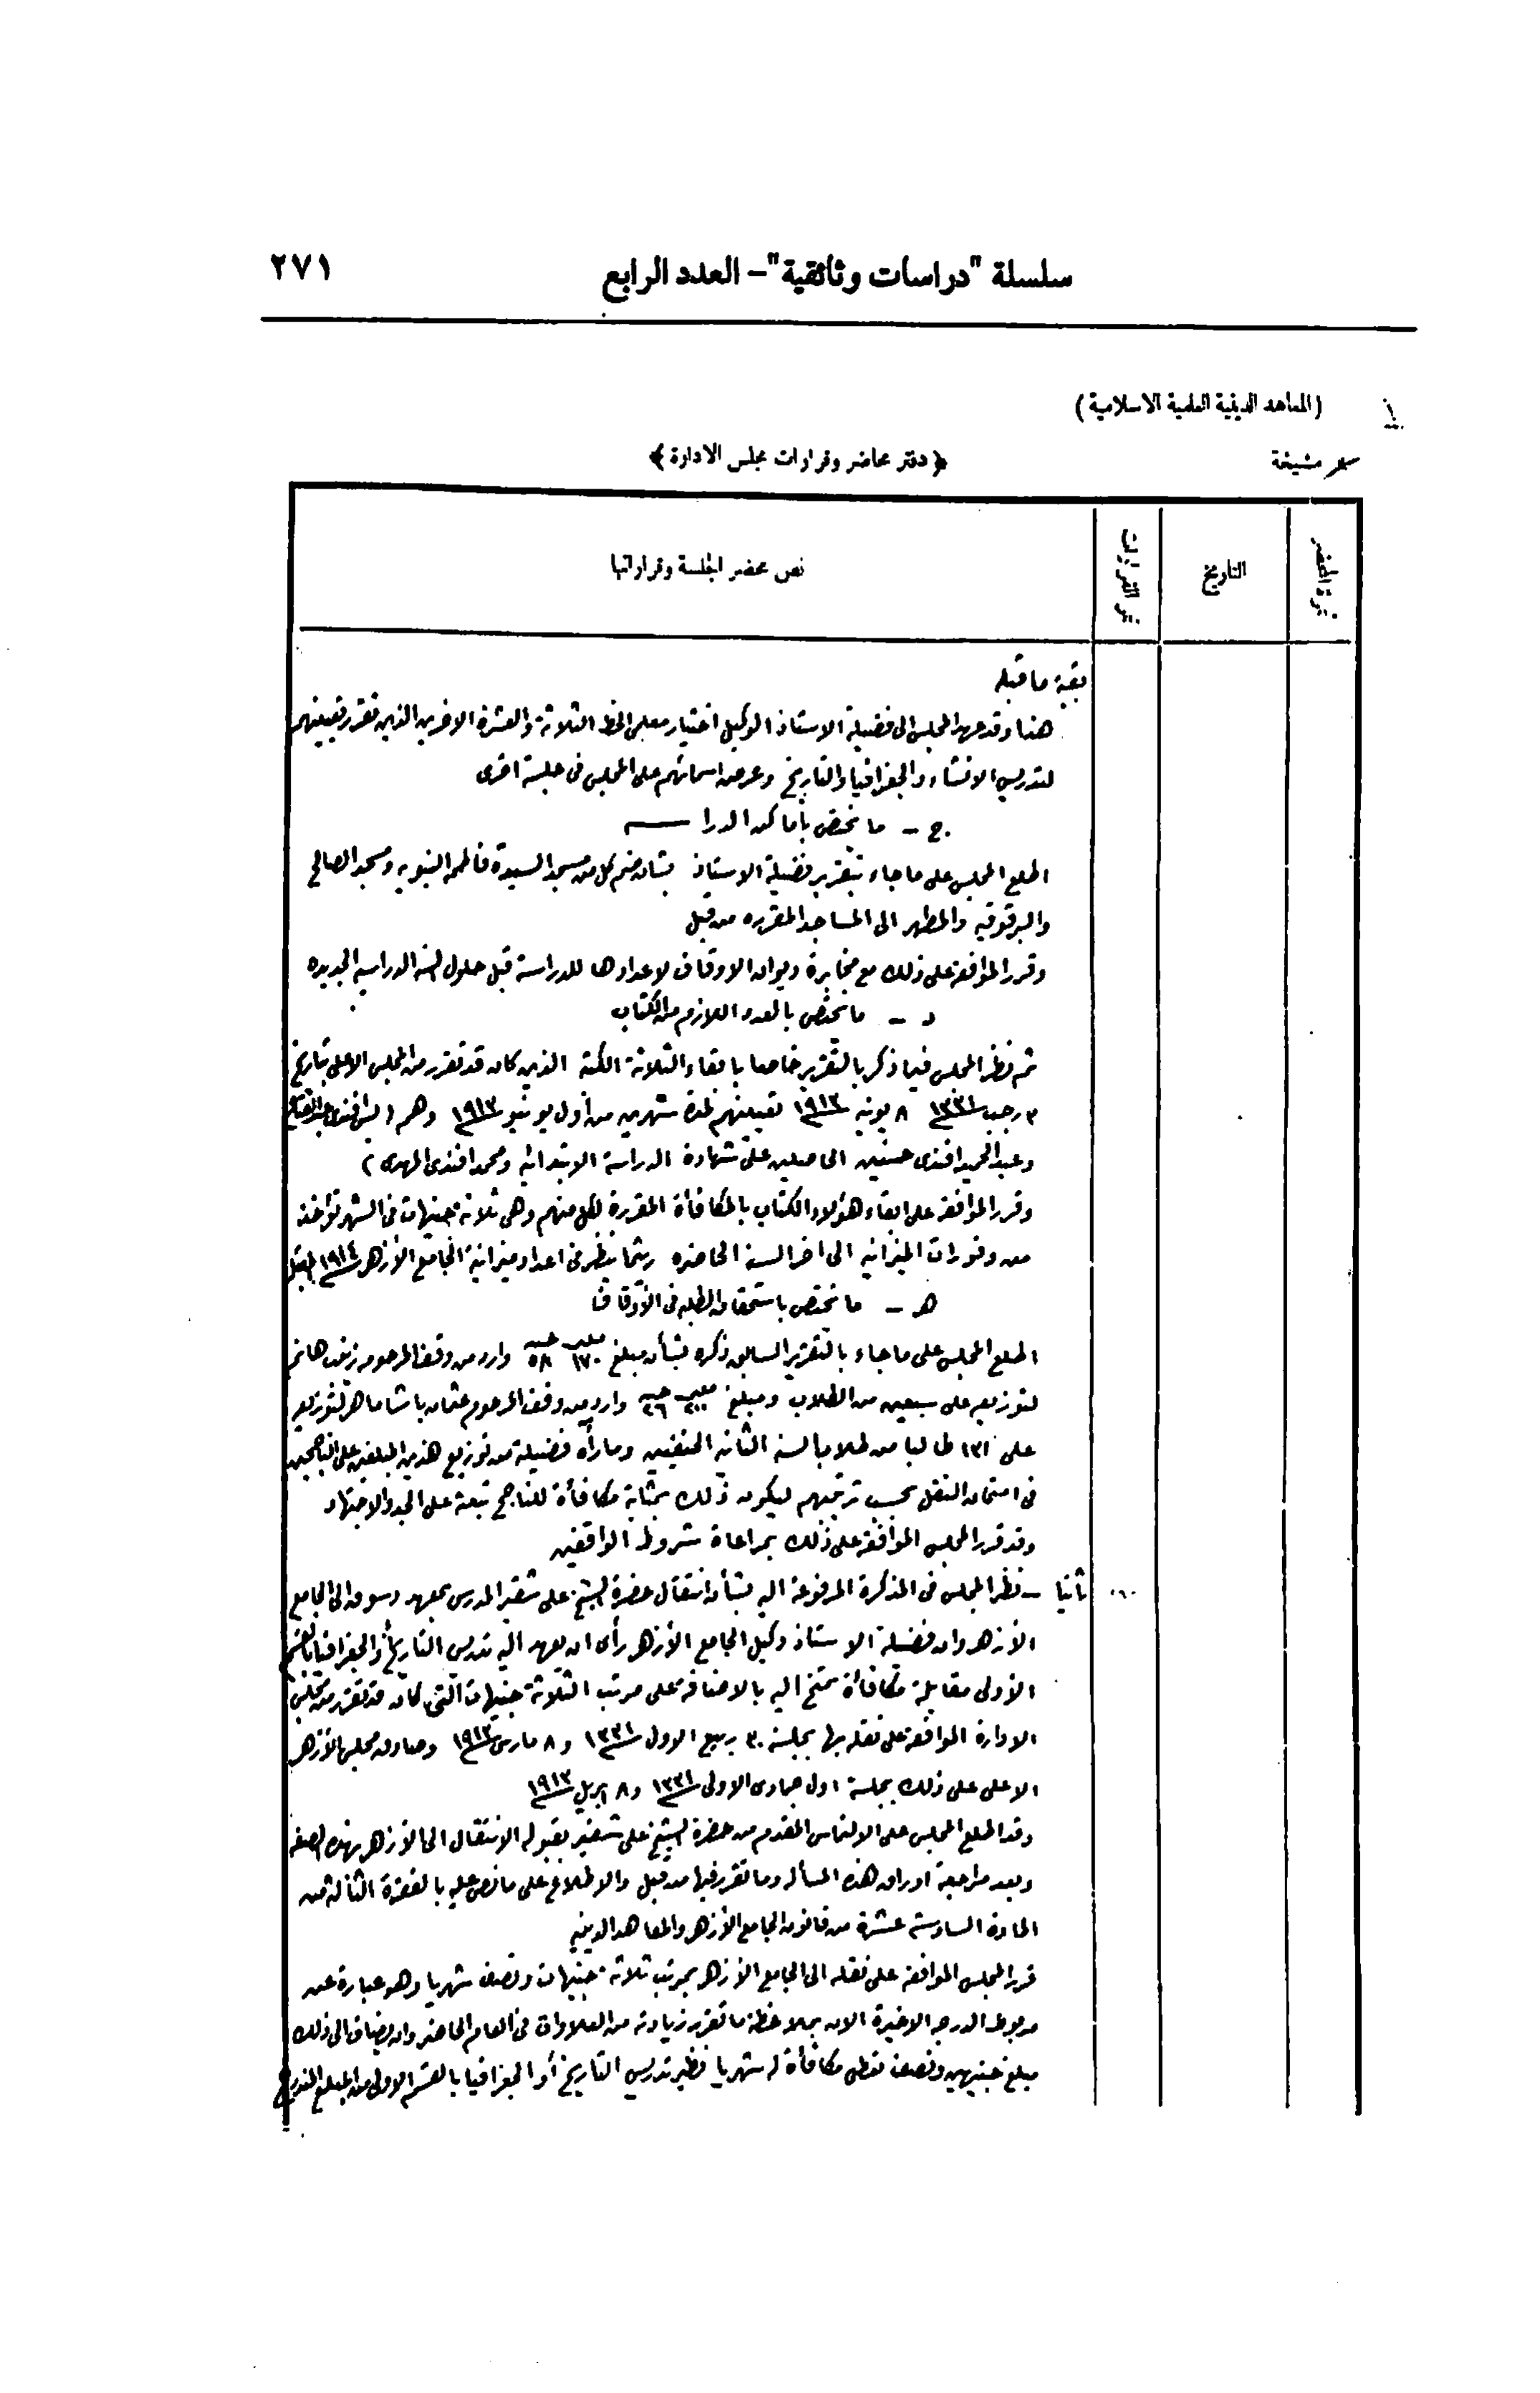 سلسلة "دراسات وثائقية"– العدد الرابع
٢٧١
(المعاهد الدينية العلمية الاسلامية)
مشيخة
﴿دفتر محاضر وقرارات مجلس الادارة﴾
نمرة المحضر
التاريخ
نمر القرارات
نص محضر الجلسة وقراراتها
بقية ما قبله
هذا وقد عهد المجلس الى فضيلة الاستاذ الوكيل اختيار معلمى الخط الثلاثة والعشرة الاخرين الذين تقرر تعيينهم
لتدريس الانشاء والجغرافيا والتاريخ وعرض اسمائهم على المجلس فى جلسة اخرى
ج – ما يختص بأماكن الدراسـة
اطلع المجلس على ما جاء بتقرير فضيلة الاستاذ بشأن ضم كل من مسجد السيدة فاطمه النبويه ومسجد الصالح
والبرقوقيه والمطهر الى المساجد المقرره من قبل
وقرر الموافقة على ذلك مع مخابرة ديوان الاوقاف لاعدادها للدراسة قبل حلول السنه الدراسيه الجديده
د – ما يختص بالعدد اللازم من الكتاب
ثم نظر المجلس فيما ذكر بالتقرير خاصا بابقاء الثلاثة الكتبه الذين كان قد تقرر من المجلس الاعلى بتاريخ
٣ رجب ١٣٣١ ٨ يونيه ١٩١٣ تعيينهم لمدة شهرين من أول يونيو ١٩١٣ وهم (
وعبد الحميد افندى حسنين الحاصلين على شهادة الدراسة الابتدائيه ومحمد افندى المهدى)
وقرر الموافقه على ابقاء هؤلاء الكتاب بالمكافأة المقررة لكل منهم وهى ثلاثة جنيهات فى الشهر تؤخذ
من وفورات الميزانيه الى اخر السنه الحاضره ريثما ينظر فى اعداد ميزانية الجامع الأزهر ١٩١٤ المقبل
هـ – ما يختص باستحقاق الطلبه فى الأوقاف
اطلع المجلس على ما جاء بالتقرير السابق ذكره بشأن مبلغ ١٧٠ مليم ٥٨ جنيه وارد من وقف المرحومه زينب هانم
لتوزيعه على سبعين من الطلاب ومبلغ مليم ٢٦ جنيه وارد من وقف المرحوم عثمان باشا ماهر لتوزيعه
على ١٣١ طالبا من طلاب السنه الثانيه الحنفيين وما رآه فضيلة من توزيع هذين المبلغين على الناجحين
فى امتحان النقل بحسب ترتيبهم ليكون ذلك بمثابة مكافأة للناجح تبعثه على الجد والاجتهاد
وقد قرر المجلس الموافقة على ذلك بمراعاة شروط الواقفين
٦٠ ثانيا – نظر المجلس فى المذكرة المرفوعة اليه بشأن انتقال حضرة الشيخ على شقير المدرس بمعهد دسوق الى الجامع
الأزهر وان فضيلة الاستاذ وكيل الجامع الأزهر رأى ان يعهد اليه تدريس التاريخ والجغرافيا بالقسم
الأولى مقابلة مكافأة تمنح اليه بالاضافة على مرتب الثلاثة جنيهات التى كان قد تقرر من مجلس
الادارة الموافقة على نقله بها بجلسة ٣٠ ربيع الاول ١٣٣١ و٨ مارس ١٩١٣ وصادق مجلس الأزهر
الاعلى على ذلك بجلسة اول جمادى الاولى ١٣٣١ و٨ ابريل ١٩١٣
وقد اطلع المجلس على الالتماس المقدم من حضرة الشيخ على شقير بقبوله الانتقال الى الأزهر بهذه الصفه
وبعد مراجعة اوراق هذه المسأله وما تقرر فيها من قبل والاطلاع على ما نص عليه بالفقرة الثالثة من
المادة السادسة عشرة من قانون الجامع الأزهر والمعاهد الدينيه
قرر المجلس الموافقه على نقله الى الجامع الأزهر بمرتب ثلاثة جنيهات ونصف شهريا وهو عبارة عن
مربوط الدرجه الاخيرة الان بملاحظة ما تقرر زيادته من العلاوات فى العام الحاضر وان يضاف الى ذلك
مبلغ جنيهين ونصف تعطى مكافأة له شهريا نظير تدريس التاريخ أو الجغرافيا بالقسم الاولى من المبلغ المندرج